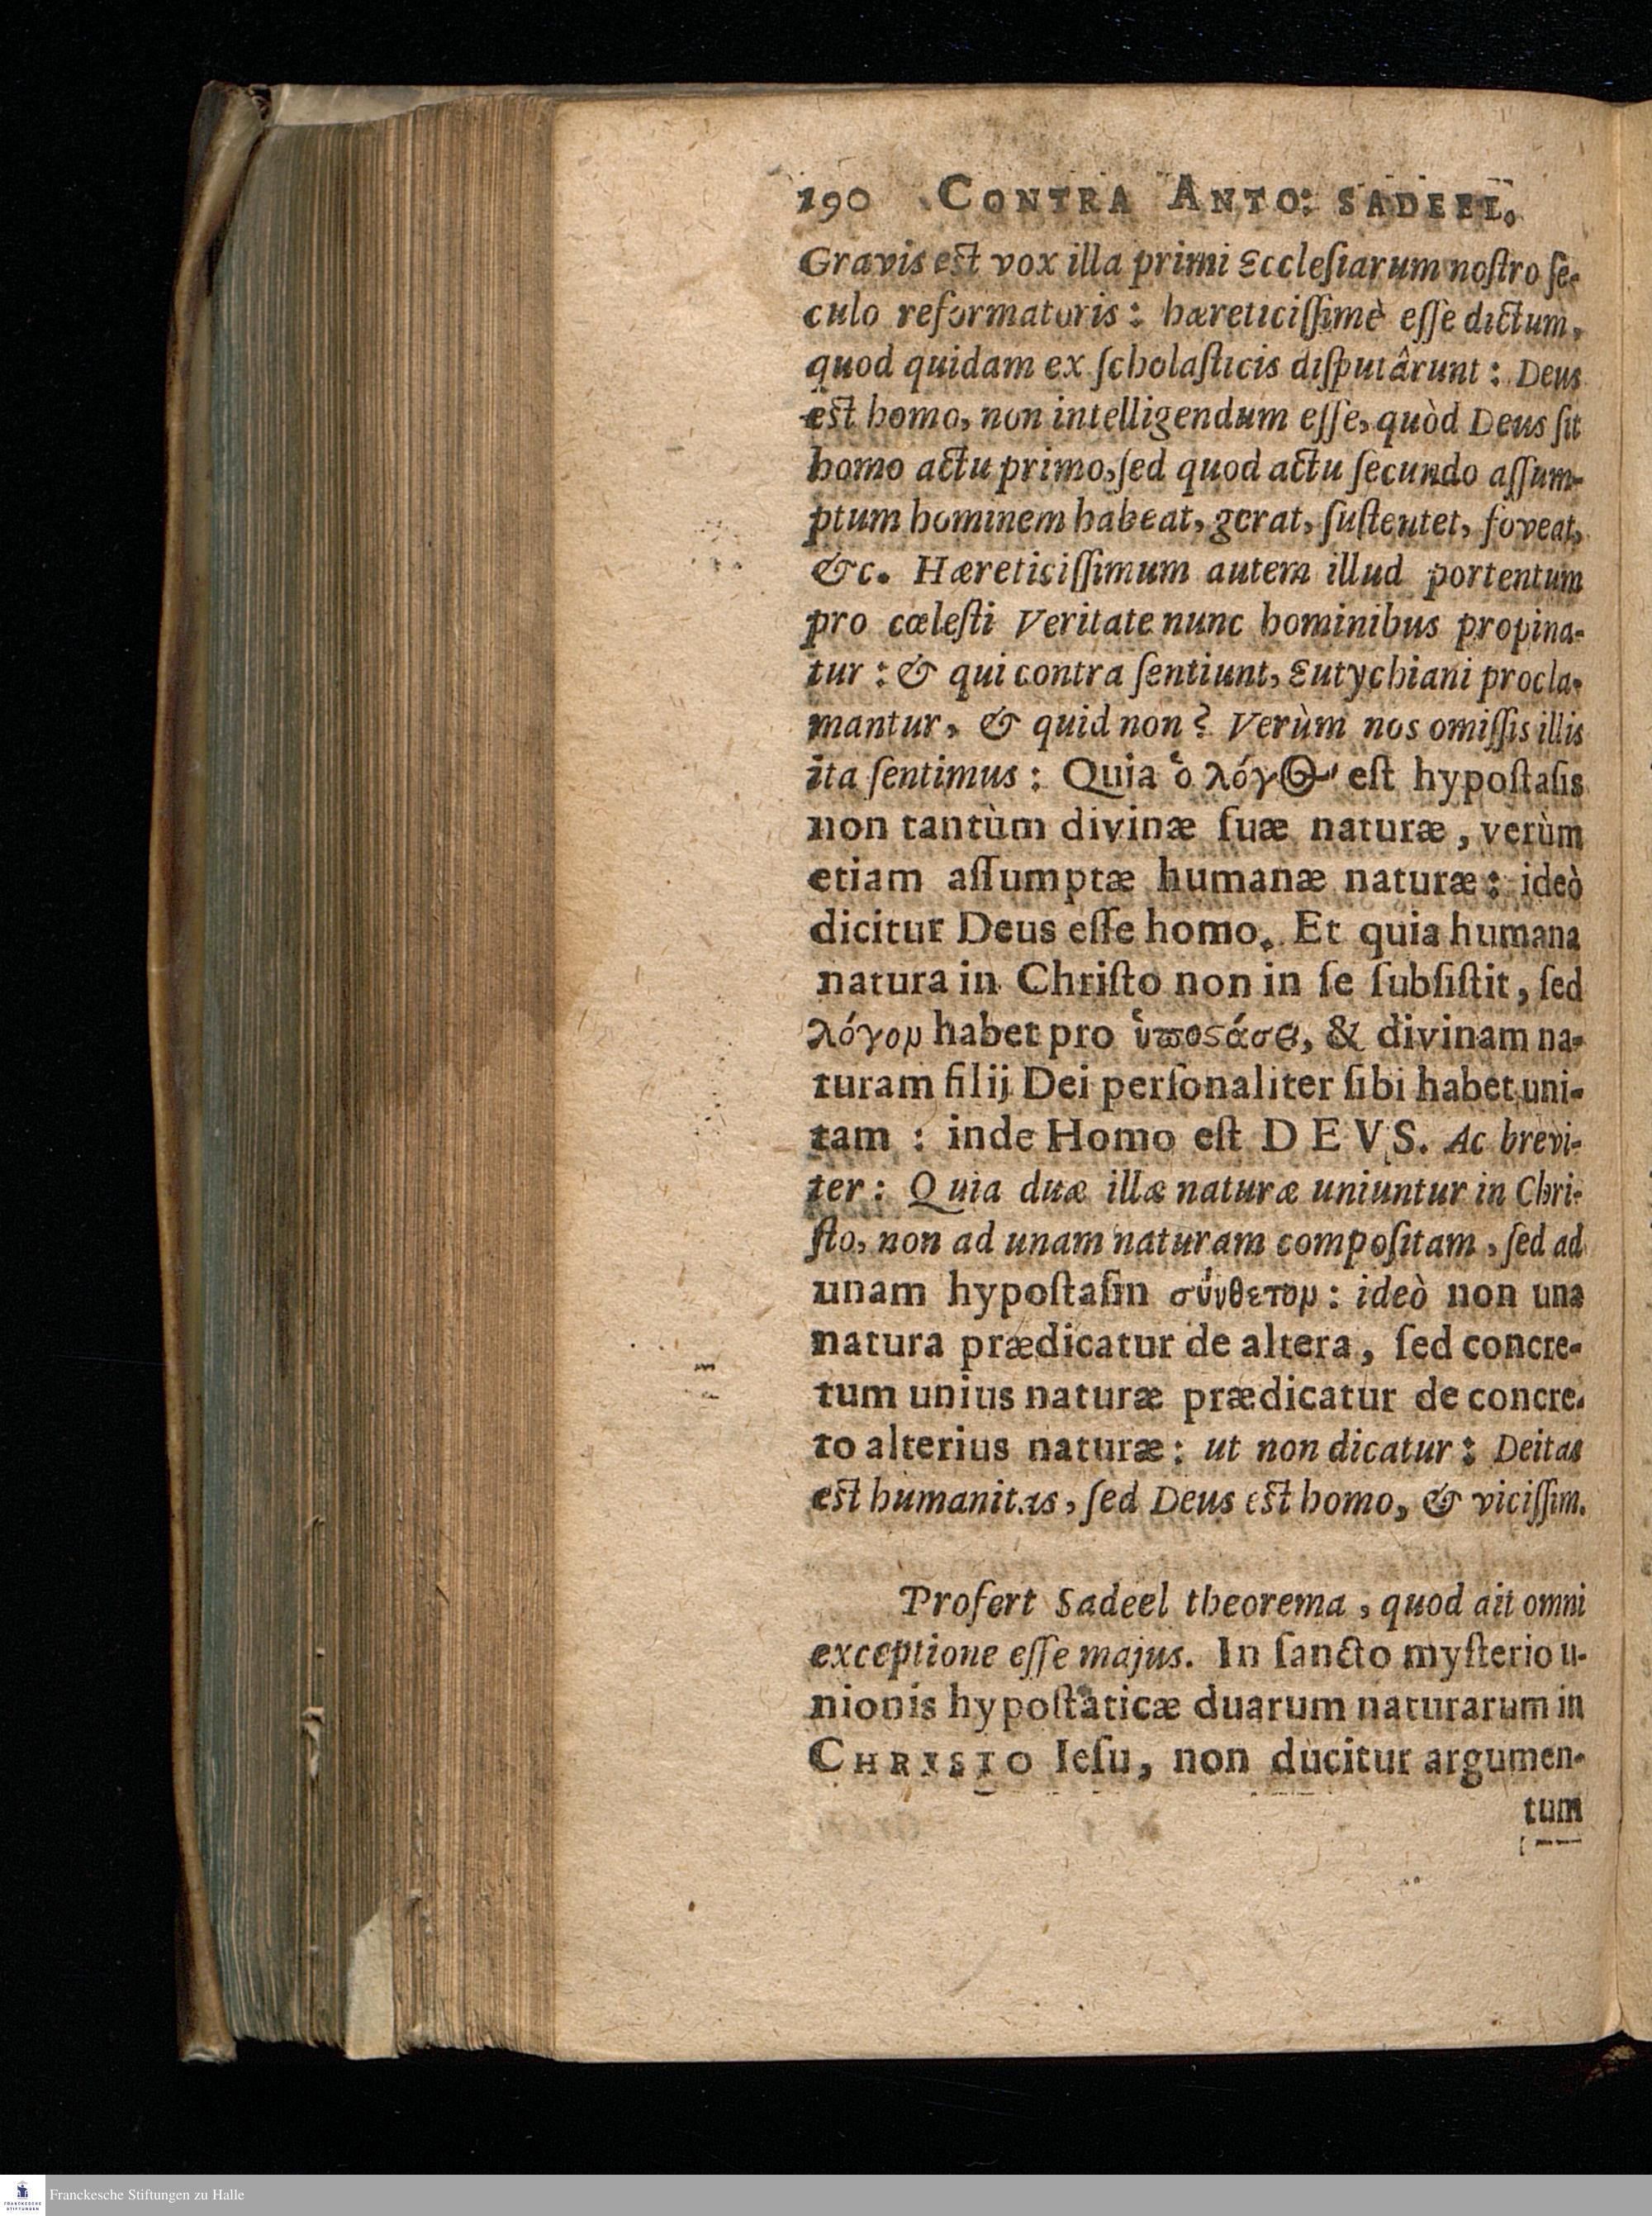 190 CONTRA ANTO: SADEEL.
Gravis est vox illa primi Ecclesiarum nostro se-
culo reformatoris: hæreticissimè esse dictum,
quod quidam ex scholasticis disputârunt: Deus
est homo, non intelligendum esse, quòd Deus sit
homo actu primo, sed quod actu secundo assum-
ptum hominem habeat, gerat, sustentet, foveat,
&c. Hæreticissimum autem illud portentum
pro cœlesti Veritate nunc hominibus propina-
tur: & qui contra sentiunt, Eutychiani procla-
mantur, & quid non? Verùm nos omissis illis
ita sentimus: Quia ὁ λόγος est hypostasis
non tantùm divinæ suæ naturæ, verùm
etiam assumptæ humanæ naturæ: ideò
dicitur Deus esse homo. Et quia humana
natura in Christo non in se subsistit, sed
λόγον habet pro ὑποστάσει, & divinam na-
turam filij Dei personaliter sibi habet uni-
tam: inde Homo est DEVS. Ac brevi-
ter: Quia duæ illæ naturæ uniuntur in Chri-
sto, non ad unam naturam compositam, sed ad
unam hypostasin σύνθετον: ideò non una
natura prædicatur de altera, sed concre-
tum unius naturæ prædicatur de concre-
to alterius naturæ: ut non dicatur: Deitas
est humanitas, sed Deus est homo, & vicissim.
Profert Sadeel theorema, quod ait omni
exceptione esse majus. In sancto mysterio u-
nionis hypostaticæ duarum naturarum in
CHRISTO Iesu, non ducitur argumen-
tum
Franckesche Stiftungen zu Halle
FRANCKESCHE
STIFTUNGEN